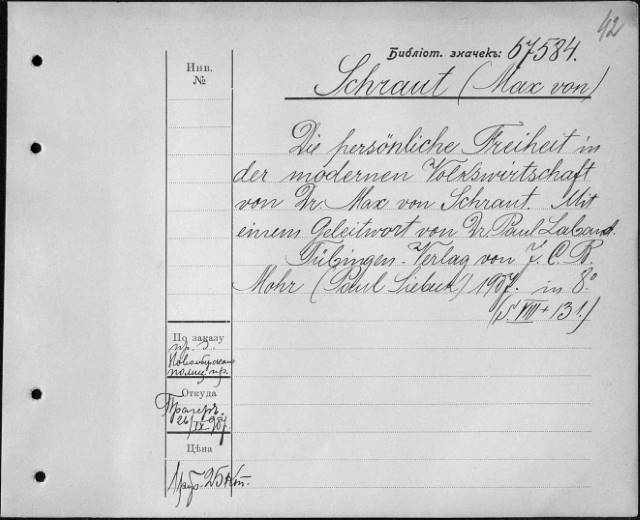 42
Библіот. значекъ: 57584.
Инв.
№
Schraut (Max von)
Die persönliche Freiheit in
der modernen Volkswirtschaft
von Dr Max von Schraut. Mit
einem Geleitwort von Dr. Paul Laband.
Tübingen. Verlag von J. C. B.
Mohr (Paul Siebeck) 1907. in 8°
(S. VIII + 131.)
По заказу
пр. З.
полиц. пр.
Откуда
26/IX 907.
Цѣна
1 руб. 25 коп.